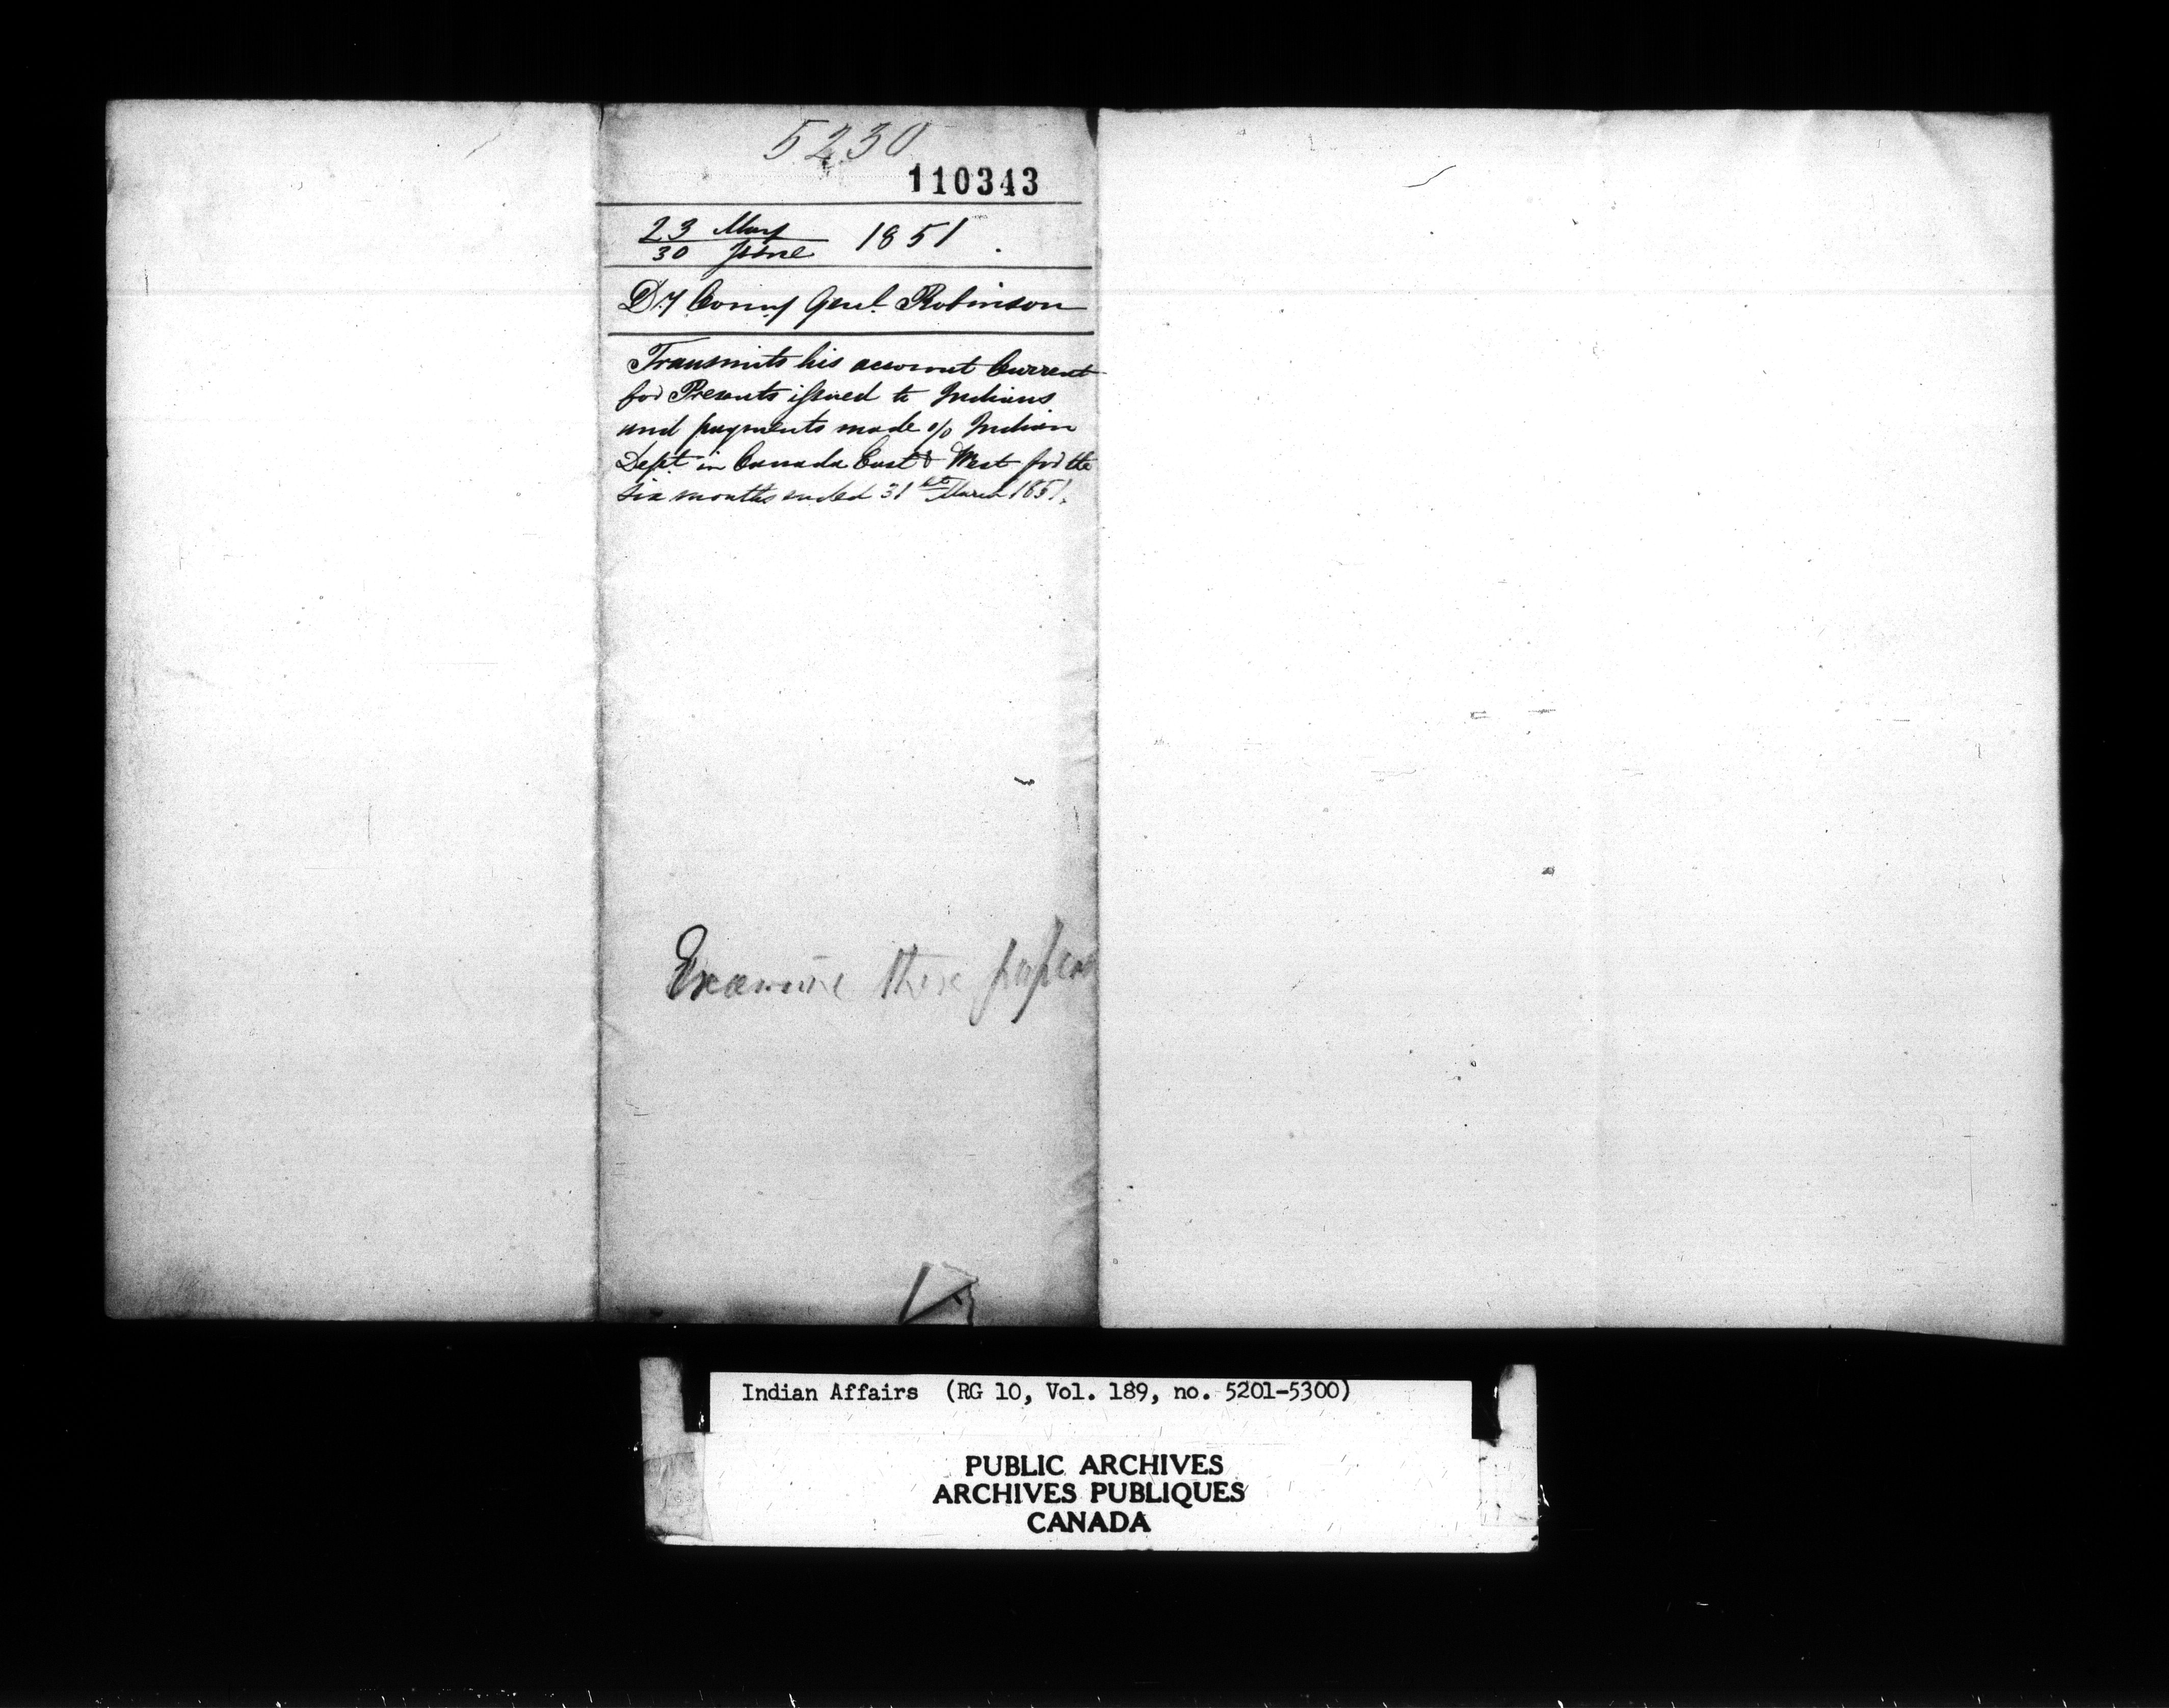 5230
110343
23 May
30 June 1851.
Dy Comy Genl. Robinson
Transmits his account Current
for Presents issued to Indians
and payments made o/o Indian
Dept. in Canada East & West for the
six months ended 31st March 1851.
Examine these papers
Indian Affairs (RG 10, Vol. 189, no. 5201-5300)
PUBLIC ARCHIVES
ARCHIVES PUBLIQUES
CANADA